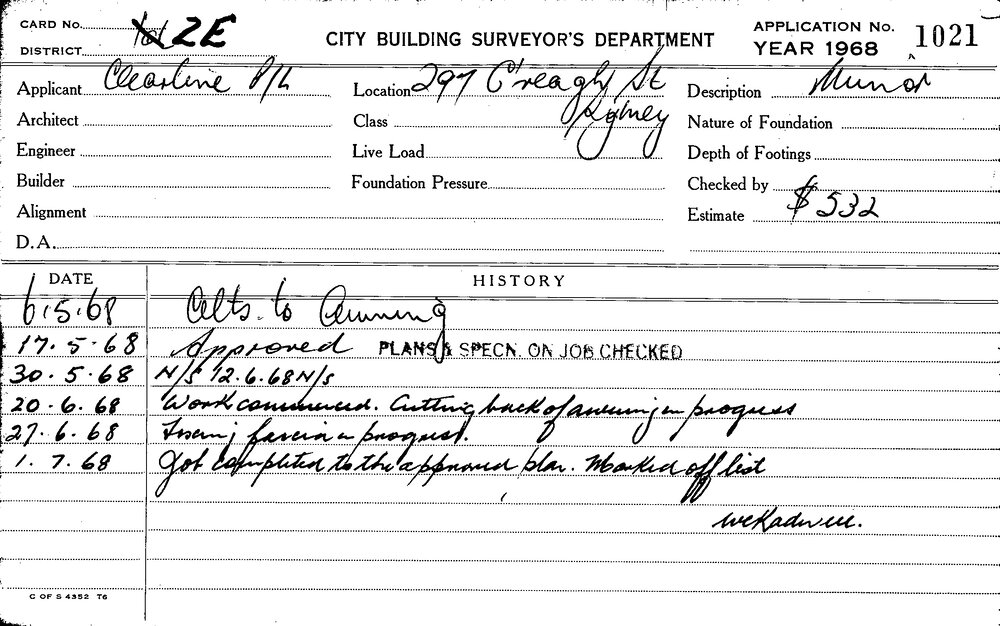 CARD No. 2E
DISTRICT
CITY BUILDING SURVEYOR'S DEPARTMENT
APPLICATION No. 1021
YEAR 1968
Applicant Clearline P/L
Location 297 C'reagh St Sydney
Description Minor
Architect
Class
Nature of Foundation
Engineer
Live Load
Depth of Footings
Builder
Foundation Pressure
Checked by
Alignment
Estimate $532
D.A.
DATE HISTORY
6.5.68 Alts. to Awning
17.5.68 Approved PLANS & SPECN. ON JOB CHECKED
30.5.68 N/S 12.6.68 N/S
20.6.68 Work commenced. Cutting back of awning in progress
27.6.68 fascia in progress.
1.7.68 Job completed to the approved plan. Marked off list
C OF S 4352 T6